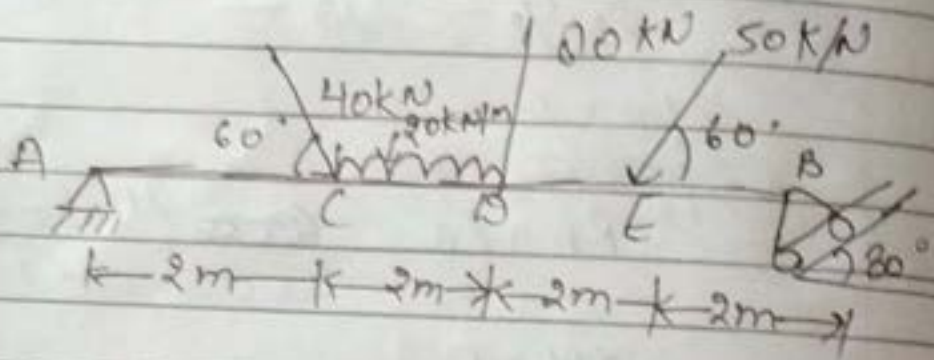 80 KN 50 K/N
40KN
20KN/m
60° 60°
A B
C D E
2m 2m 2m 2m
30°